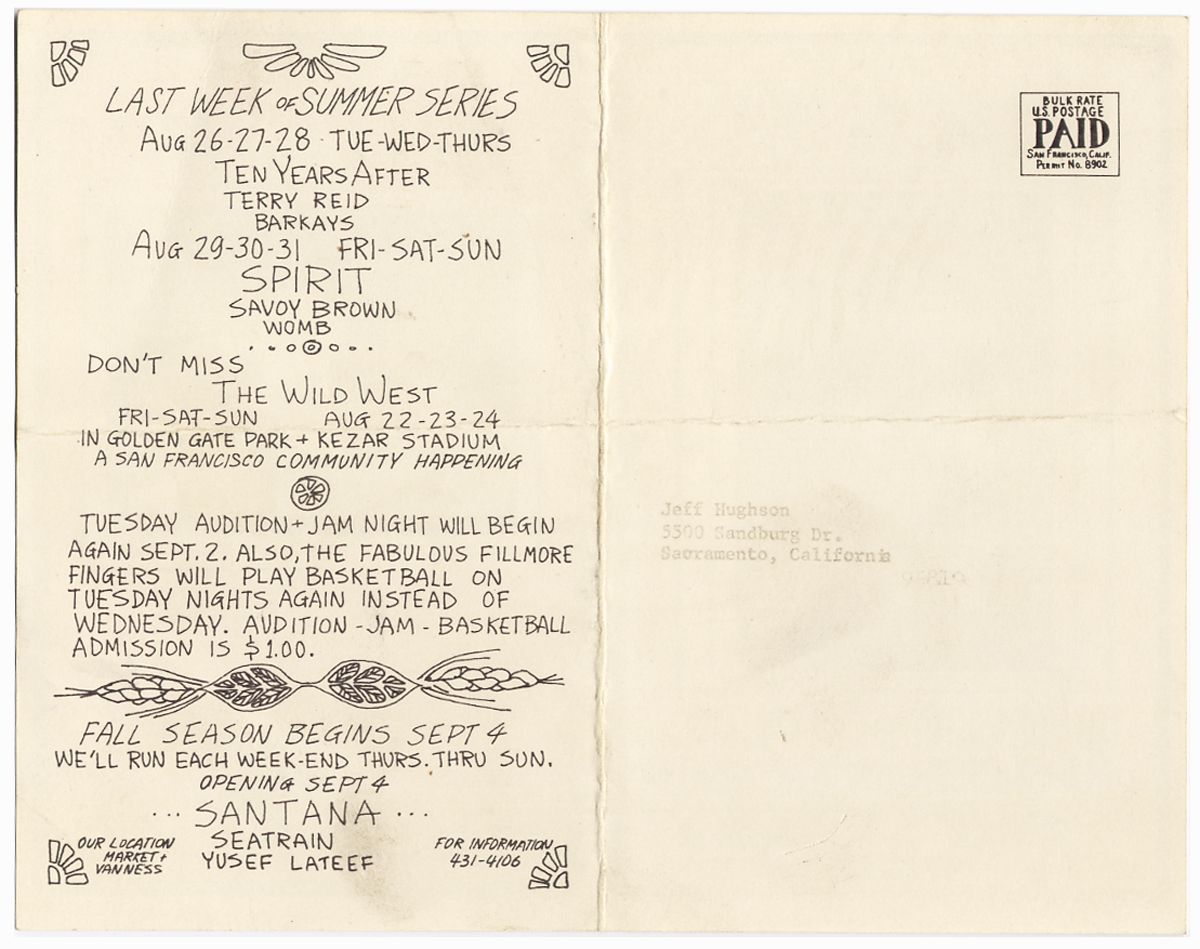 LAST WEEK OF SUMMER SERIES
AUG 26-27-28 · TUE-WED-THURS
TEN YEARS AFTER
TERRY REID
BARKAYS
AUG 29-30-31 FRI-SAT-SUN
SPIRIT
SAVOY BROWN
WOMB
DON'T MISS
THE WILD WEST
FRI-SAT-SUN AUG 22-23-24
IN GOLDEN GATE PARK + KEZAR STADIUM
A SAN FRANCISCO COMMUNITY HAPPENING
TUESDAY AUDITION + JAM NIGHT WILL BEGIN
AGAIN SEPT. 2. ALSO, THE FABULOUS FILLMORE
FINGERS WILL PLAY BASKETBALL ON
TUESDAY NIGHTS AGAIN INSTEAD OF
WEDNESDAY. AUDITION - JAM - BASKETBALL
ADMISSION IS $1.00.
FALL SEASON BEGINS SEPT 4
WE'LL RUN EACH WEEK-END THURS. THRU SUN.
OPENING SEPT 4
... SANTANA ...
SEATRAIN
YUSEF LATEEF
OUR LOCATION
MARKET +
VANNESS
FOR INFORMATION
431-4106
BULK RATE
U.S. POSTAGE
PAID
SAN FRANCISCO, CALIF.
PERMIT NO. 8902
Jeff Hughson
5500 Sandburg Dr.
Sacramento, California
95819